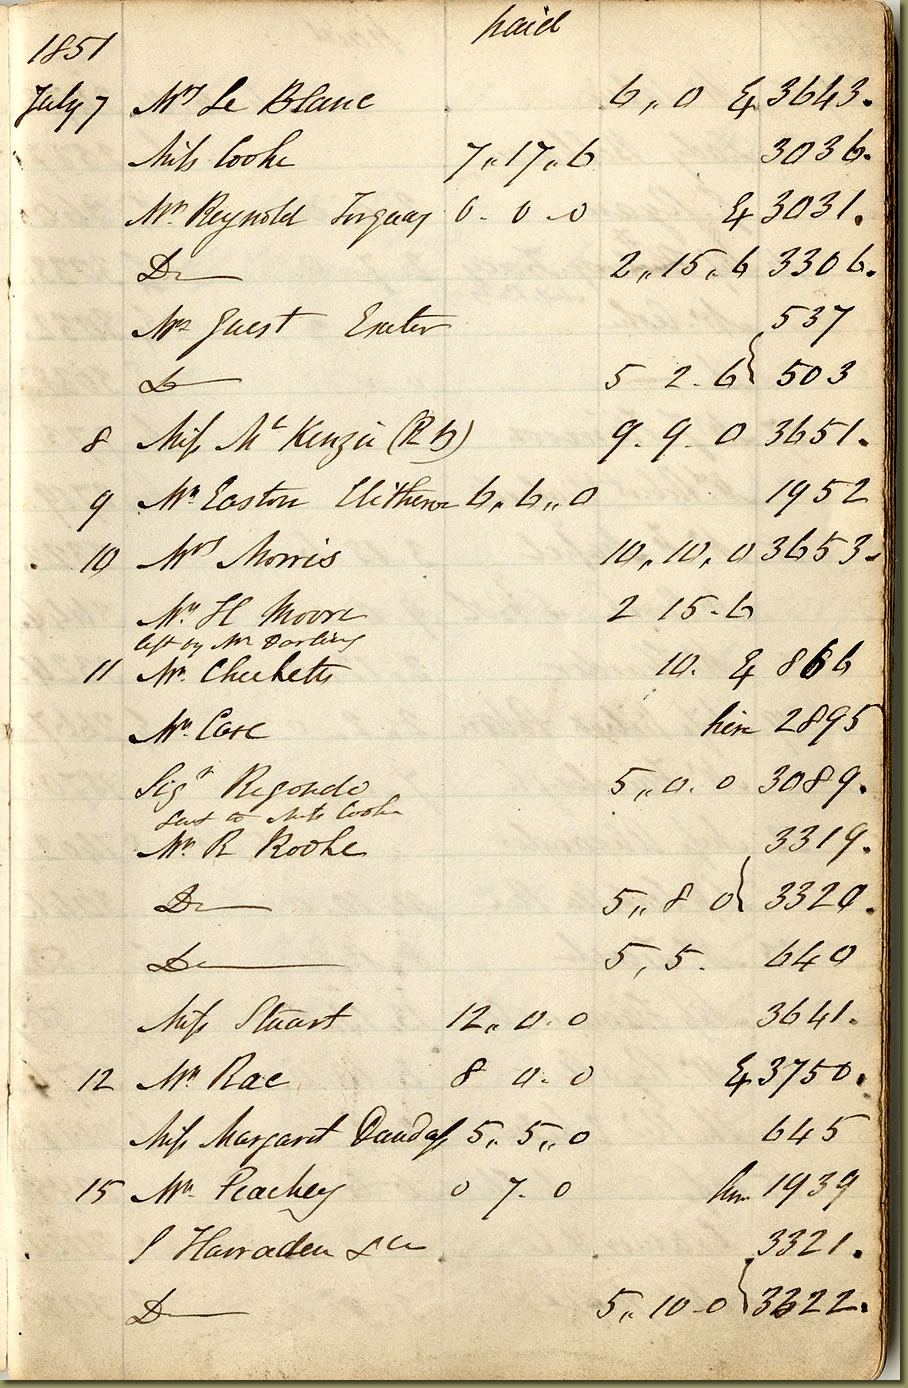 paid
1851
July 7 Mrs Le Blanc 6,, 0 & 3643.
Miss Cooke 7,,17,,6 3036.
Mr Reynold Torquay 0. 0 .0 & 3031.
Do 2,,15,,6 3306.
Mr Guest Exeter 537
Do 5 2. 6 } 503
8 Miss Mc Kenzie (R B) 9. 9. 0 3651.
9 Mr Easton 6,,6,,0 1952
10 Mrs Morris 10,,10,,0 3653.
Mr H Moore 2 15.6
left by Mr Darling
11 Mr Checketts 10. & 866
Mr Case hire 2895
Sigr Regondo 5,,0. 0 3089.
Sent to Miss Cooke
Mr R Rooke 3319.
Do 5,, 8 0 } 3320.
Do 5, 5. 640
Miss Stuart 12,, 0. 0 3641.
12 Mr Rae 8 0. 0 & 3750.
Miss Margaret Dundass 5,, 5,,0 645
15 Mr Peachey 0 7. 0 hire 1939
S Harraden &Co 3321.
Do 5,, 10 .0 } 3322.